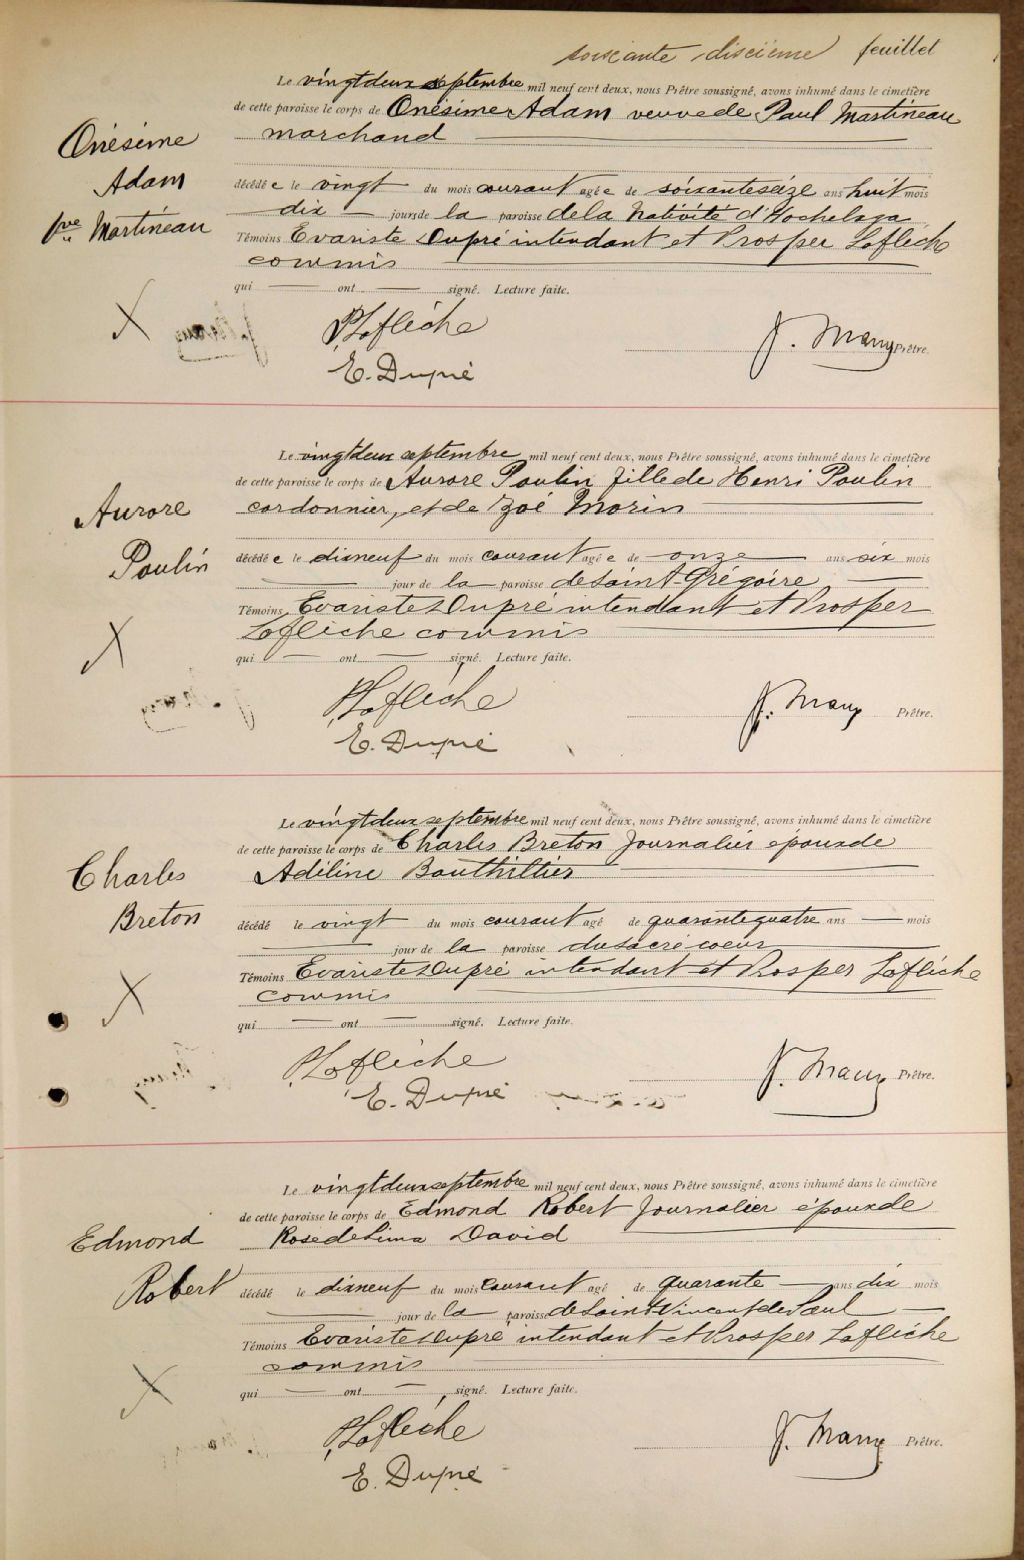 soixante dixième feuillet
Le vingtdeux septembre mil neuf cent deux, nous Prêtre soussigné, avons inhumé dans le cimetière
de cette paroisse le corps de Onésime Adam veuve de Paul Martineau
marchand
Onésime
Adam
Martineau
décédée le vingt du mois courant agée de soixanteseize ans huit mois
dix jours de la paroisse de la Nativité d'Hochelaga
Témoins Evariste Dupré intendant et Prosper Laflèche
commis
qui ont signé. Lecture faite.
PLaflèche
E. Dupré
Prêtre.
Le vingtdeux septembre mil neuf cent deux, nous Prêtre soussigné, avons inhumé dans le cimetière
de cette paroisse le corps de Aurore Poulin fille de Henri Poulin
cordonnier, et de Zoé Morin
Aurore
Poulin
décédée le dixneuf du mois courant agée de onze ans six mois
jour de la paroisse de Saint-Grégoire
Témoins Evariste Dupré intendant et Prosper
Laflèche commis
qui ont signé. Lecture faite.
PLaflèche
E. Dupré
Prêtre.
Le vingtdeux septembre mil neuf cent deux, nous Prêtre soussigné, avons inhumé dans le cimetière
de cette paroisse le corps de Charles Breton Journalier époux de
Adéline Bouthillier
Charles
Breton
décédé le vingt du mois courant agé de quarantequatre ans mois
jour de la paroisse du sacré coeur
Témoins Evariste Dupré intendant et Prosper Laflèche
commis
qui ont signé. Lecture faite.
PLaflèche
E. Dupré
Prêtre.
Le vingtdeux septembre mil neuf cent deux, nous Prêtre soussigné, avons inhumé dans le cimetière
de cette paroisse le corps de Edmond Robert Journalier époux de
Rose de Lima David
Edmond
Robert
décédé le dixneuf du mois courant agé de quarante ans dix mois
jour de la paroisse de Saint Vincent de Paul
Témoins Evariste Dupré intendant et Prosper Laflèche
commis
qui ont signé. Lecture faite.
PLaflèche
E. Dupré
Prêtre.